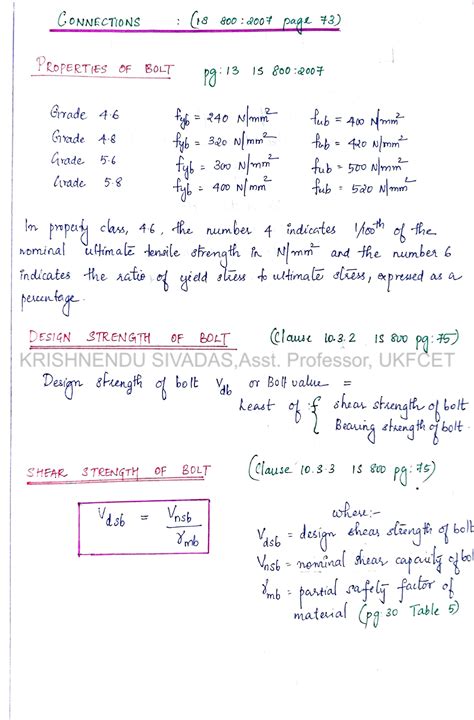 CONNECTIONS : (IS 800:2007 page 73)
PROPERTIES OF BOLT pg:13 IS 800:2007
Grade 4.6 fyb = 240 N/mm² fub = 400 N/mm²
Grade 4.8 fyb = 320 N/mm² fub = 420 N/mm²
Grade 5.6 fyb = 300 N/mm² fub = 500 N/mm²
Grade 5.8 fyb = 400 N/mm² fub = 520 N/mm²
In property class, 4.6, the number 4 indicates 1/100th of the
nominal ultimate tensile strength in N/mm² and the number 6
indicates the ratio of yield stress to ultimate stress, expressed as a
percentage.
DESIGN STRENGTH OF BOLT (Clause 10.3.2 IS 800 pg:75)
KRISHNENDU SIVADAS,Asst. Professor, UKFCET
Design strength of bolt Vdb or Bolt value =
Least of { shear strength of bolt
Bearing strength of bolt.
SHEAR STRENGTH OF BOLT (Clause 10.3.3 IS 800 pg:75)
Vdsb = Vnsb / γmb
where:-
Vdsb = design shear strength of bolt
Vnsb = nominal shear capacity of bol
γmb = partial safety factor of
material (pg:30 Table 5)